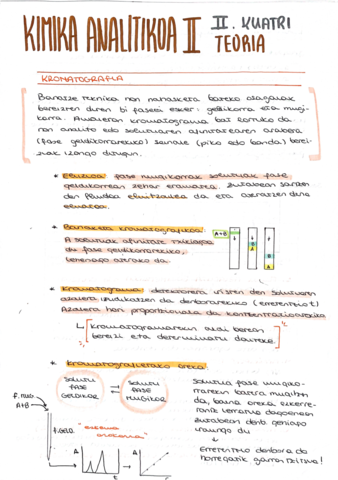 KIMIKA ANALITIKOA II
II. KUATRI
TEORIA
KROMATOGRAFIA
Banatze teknika non nahasketa bateko osagaiak
bereizten diren bi faseei esker: geldikorra eta mugi-
korra. Amaieran kromatograma bat lortuko da
non analito edo solutuaren afinitatearen arabera
(fase geldikorrarekiko) seinale (piko edo banda) berei-
ziak izango ditugun.
* Eluzioa: fase mugikorrak solutuak fase
geldikorrean zehar eramatea. Zutabean sartzen
den fluidoa eluitzailea da eta ateratzen dena
eluatoa.
* Banaketa kromatografikoa:
A solutuak afinitate txikiagoa
du fase geldikorrarekiko,
lehenago aterako da.
A+B
B
A
B
A
* Kromatograma: detektorera iristen den solutuaren
azalera irudikatzen da denborarekiko (erretentzio t)
Azalera hori proportzionala da kontzentrazioarekiko
Kromatogramarekin atal berean
bereizi eta determinatu daiteke.
* Kromatografietako oreka
SOLUTU
FASE
GELDIKOR
SOLUTU
FASE
MUGIKOR
f. MUG
A+B
f. GELD
A
t
A
Solutua fase mugiko-
rrarekin batera mugitzen
da, baina oreka ezkerre-
rantz
zutabean denb. gehiago
iraungo du
Erretentzio denbora da
horregatik garrantzitsua!